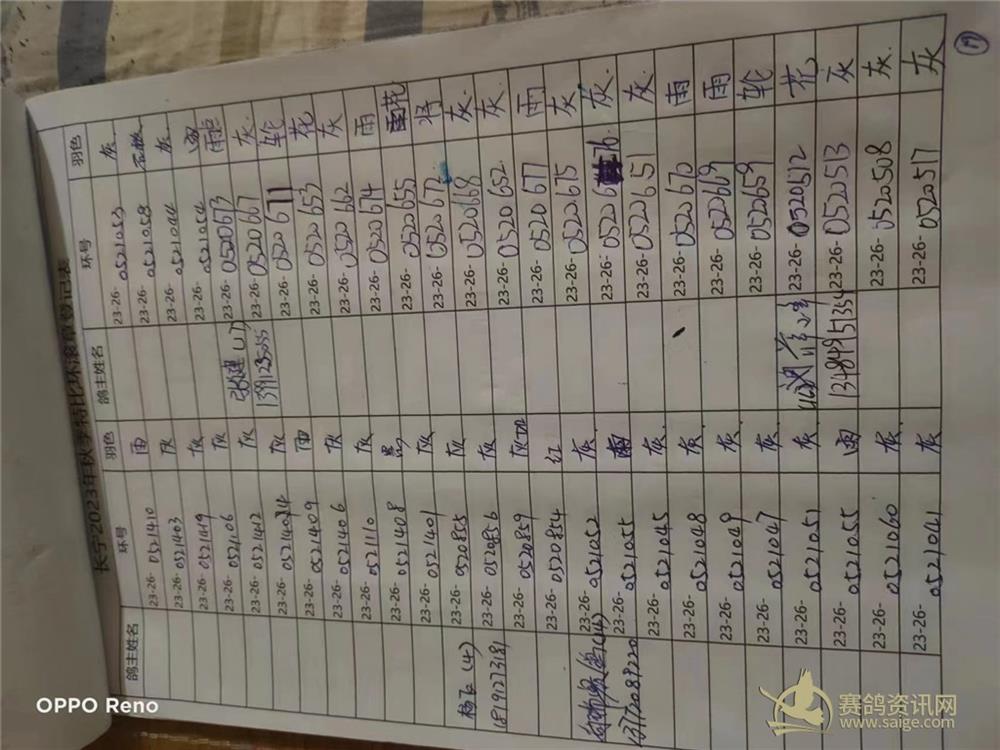 长宁2023年秋季特比环滚雏登记表
鸽主姓名 环号 羽色 鸽主姓名 环号 羽色
23-26- 0521410 雨 23-26- 0521053 灰
23-26- 0521403 灰 23-26- 0521058
23-26- 0521419 灰 23-26- 0521044 灰
23-26- 0521106 灰 23-26- 0521054
23-26- 0521412 灰 张建(17) 23-26- 0520673 灰
23-26- 灰 23-26- 0520667 轮
23-26- 0521409 雨 23-26- 0520671 花
23-26- 0521406 灰 23-26- 0520653 灰
23-26- 0521110 灰 23-26- 0520662 雨
23-26- 0521408 23-26- 0520674
23-26- 0521401 灰 23-26- 0520655
杨飞(4) 23-26- 0520885 灰 23-26- 0520672 灰
18191273181 23-26- 0520856 灰 23-26- 0520668 灰
23-26- 0520859 23-26- 0520652 雨
23-26- 0520854 红 23-26- 0520677 灰
(14) 23-26- 0521052 灰 23-26- 0520675 灰
13772089220 23-26- 0521055 雨 23-26- 灰
23-26- 0521045 灰 23-26- 0520651 雨
23-26- 0521048 灰 23-26- 0520670 雨
23-26- 0521049 灰 23-26- 0520669 轮
23-26- 0521047 灰 23-26- 0520659 花
23-26- 0521051 灰 23-26- 0520512 灰
23-26- 0521055 雨 13484915134 23-26- 0520513 灰
23-26- 0521060 灰 23-26- 0520508 灰
23-26- 0521041 灰 23-26- 0520517 灰
OPPO Reno
赛鸽资讯网
www.saige.com